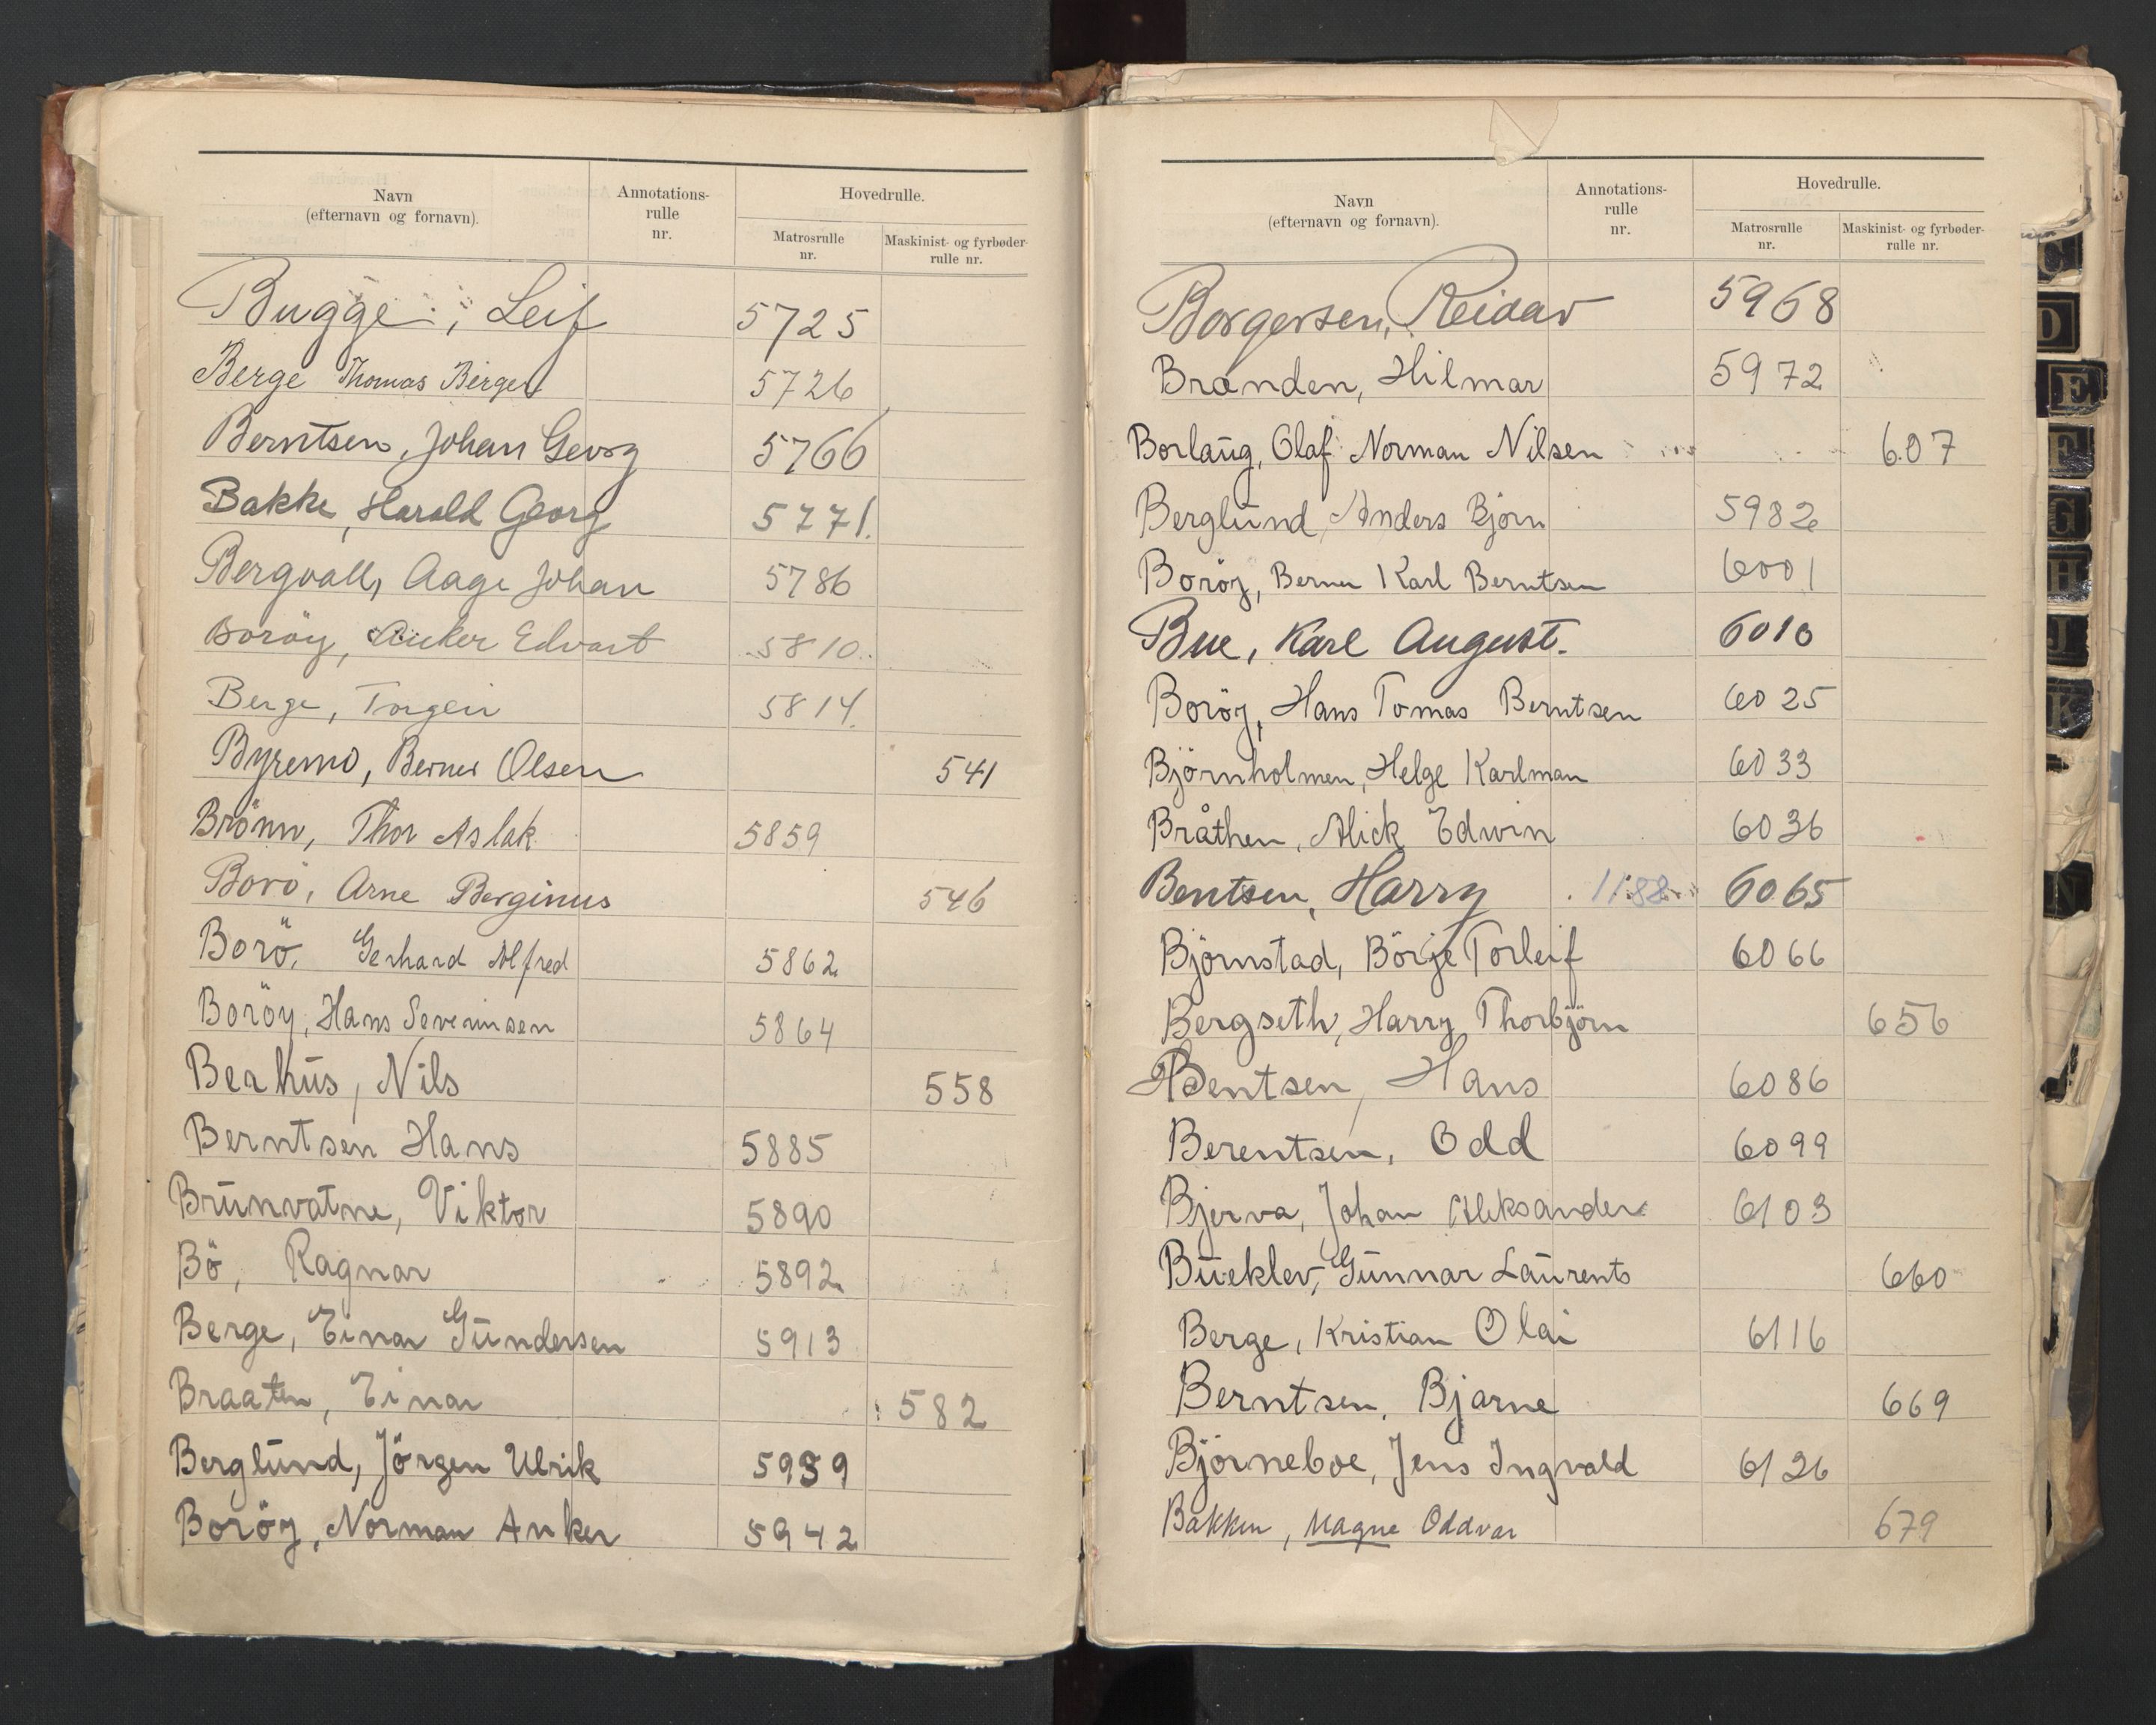 Navn
(efternavn og fornavn).
Annotations-
rulle
nr.
Hovedrulle.
Matrosrulle
nr.
Maskinist- og fyrbøder-
rulle nr.
Bugge, Leif 5725
Berge Thomas Birger 5726
Berntsen, Johan Georg 5766
Bakke, Harald Georg 5771.
Bergvall, Aage Johan 5786
Boröy, Anker Edvart 5810.
Berge, Torgeir 5814.
Byremo, Berner Olsen 541
Brönn, Thor Aslak 5859
Borö, Arne Berginus 546
Borö, Gerhard Alfred 5862
Boröy, Hans Severinsen 5864
Berhus, Nils 558
Berntsen Hans 5885
Brunvatne, Viktor 5890
Bö, Ragnar 5892
Berge, Einar Gundersen 5913
Braaten, Einar 582
Berglund, Jörgen Ulrik 5939
Boröy, Norman Anker 5942
Navn
(efternavn og fornavn).
Annotations-
rulle
nr.
Hovedrulle.
Matrosrulle
nr.
Maskinist- og fyrbøder-
rulle nr.
Borgersen, Reidar 5968
Brænden, Hilmar 5972
Borlaug, Olaf Norman Nilsen 607
Berglund, Anders Bjorn 5982
Boröy, Berner Karl Berntsen 6001
Bue, Karl August. 6010
Boröy, Hans Tomas Berntsen 6025
Björnholmen, Helge Karlman 6033
Bråthen, Alick Edwin 6036
Bentsen, Harry 1188 6065
Björnstad, Börje Torleif 6066
Bergseth, Harry Thorbjörn 656
Bentsen, Hans 6086
Berentsen, Odd 6099
Bjerva, Johan Aleksander 6103
Bueklev, Gunnar Laurents 660
Berge, Kristian Olai 6116
Berntsen, Bjarne 669
Björneboe, Jens Ingvald 6126
Bakken, Magne Oddvar 679
C
D
E
F
G
H
J
K
N